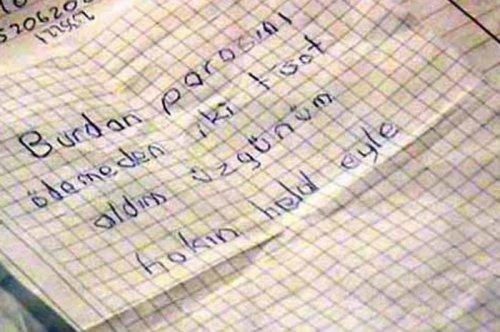 5206206
Burdan parasını
ödemeden iki tişöt
aldım üzgünüm
hakın helal eyle